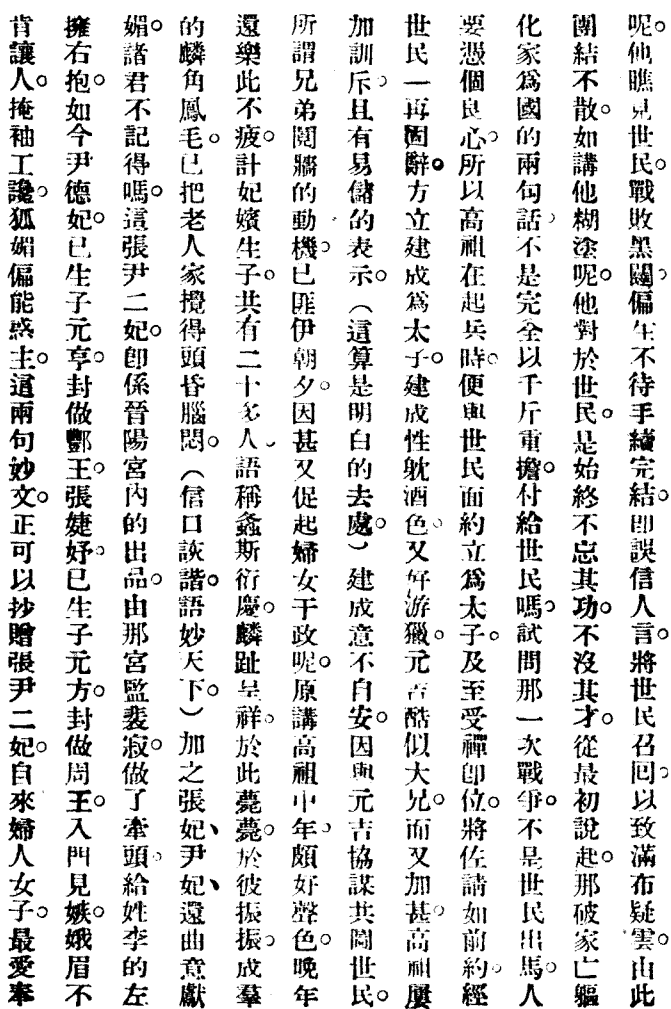 呢。他瞧見世民戰敗黑闥。偏生不待手續完結。即誤信人言將世民召回。以致滿布疑雲。由此
團結不散。如講他糊塗呢。他對於世民。是始終不忘其功。不沒其才。從最初說起。那破家亡軀
化家爲國的兩句話。不是完全以千斤重擔。付給世民嗎。試問那一次戰爭。不是世民出馬。人
要憑個良心。所以高祖在起兵時。便與世民面約立爲太子。及至受禪即位。將佐請如前約。經
世民一再固辭。方立建成爲太子。建成性躭酒色。又好游獵。元吉酷似大兄。而又加甚。高祖屢
加訓斥。且有易儲的表示。（這算是明白的去處）建成意不自安。因與元吉協謀共圖世民。
所謂兄弟鬩牆的動機。已匪伊朝夕。因甚又促起婦女干政呢。原講高祖中年。頗好聲色。晚年
還樂此不疲。計妃嬪生子。共有二十多人。語稱螽斯衍慶。麟趾呈祥。於此薨薨。於彼振振。成羣
的麟角鳳毛。已把老人家攪得頭昏腦悶。（信口詼諧。語妙天下。）加之張妃、尹妃、還曲意獻
媚。諸君不記得嗎。這張尹二妃。卽係晉陽宮內的出品。由那宮監裴寂。做了牽頭。給姓李的左
擁右抱。如今尹德妃。已生子元亨。封做酆王。張婕妤。已生子元方。封做周王。入門見嫉。娥眉不
肯讓人。掩袖工讒。狐媚偏能惑主。這兩句妙文。正可以抄贈張尹二妃。自來婦人女子。最愛奉